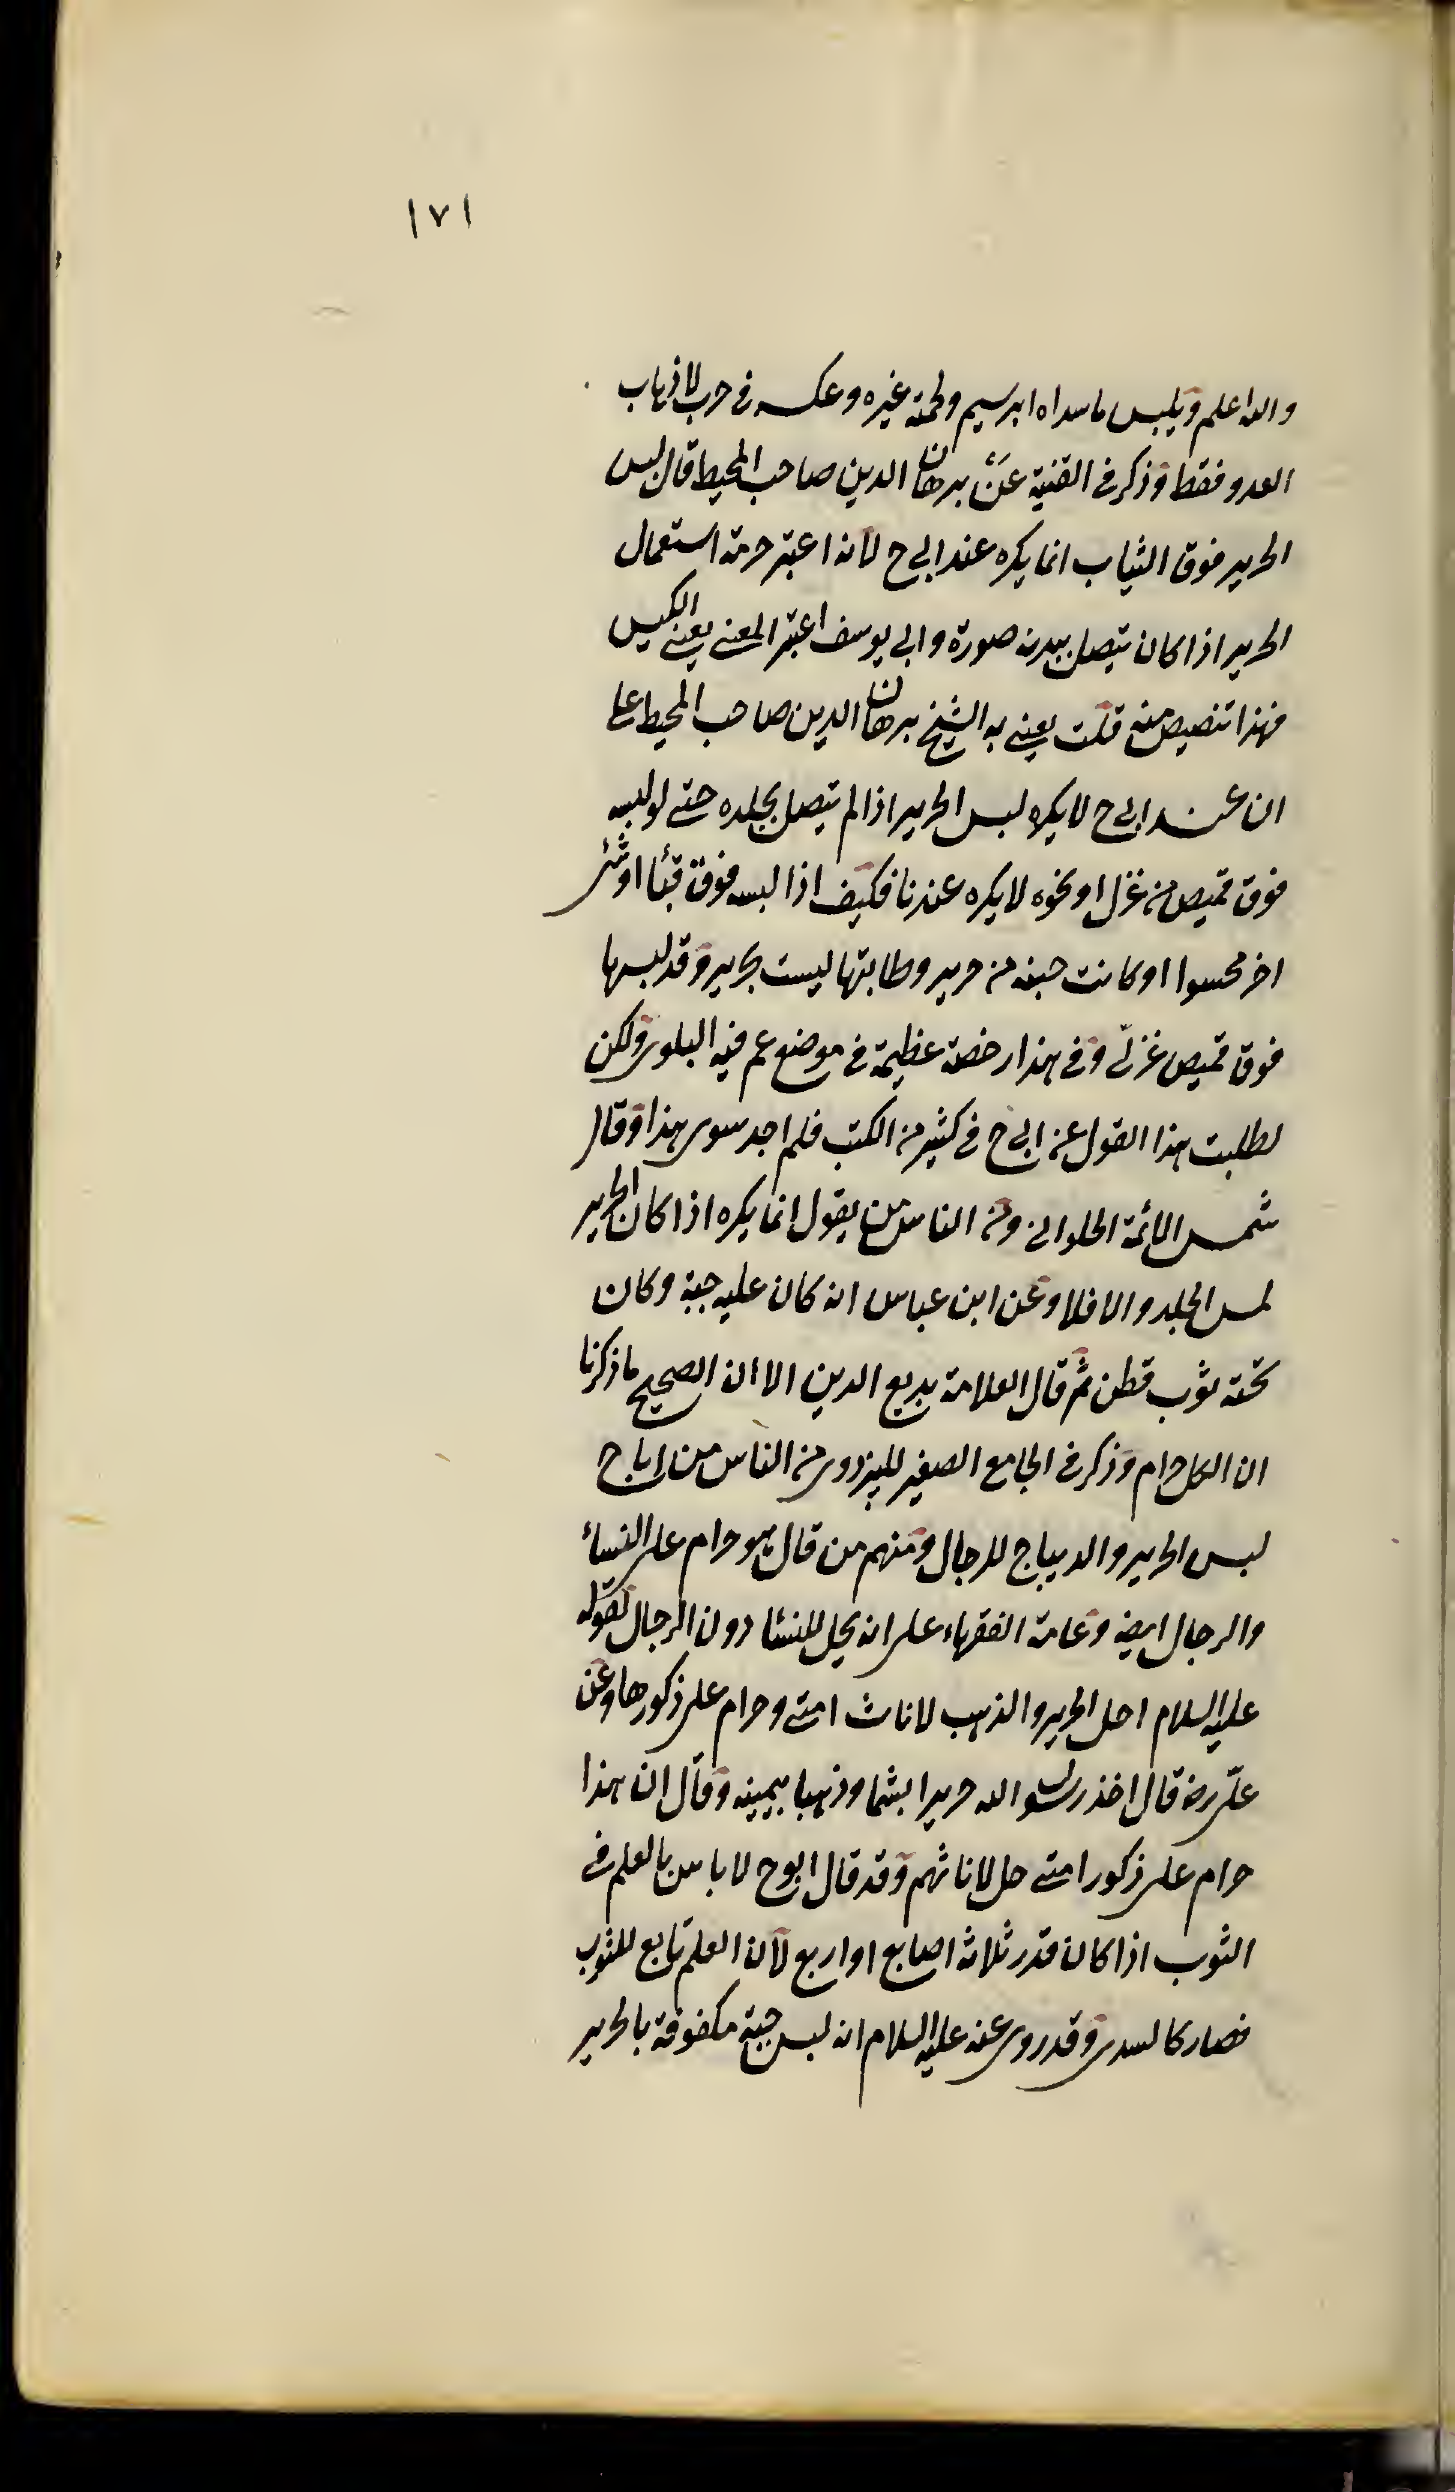 ١٧١
والله اعلم ويلبس ما سداه ابريسم ولحمته غيره وعكسه في حرب لارهاب
العدو فقط وذكر في القنية عن برهان الدين صاحب المحيط قال لبس
الحرير فوق الثياب انما يكره عند ابي ح لانه اعتبر حرمة استعمال
الحرير اذا كان يتصل ببدنه صورة وابي يوسف اعتبر المعنى يعني اللبس
فهذا تنصيص منه قلت يعني به الشيخ برهان الدين صاحب المحيط على
ان عند ابي ح لا يكره لبس الحرير اذا لم يتصل بجلده حتى لو لبسه
فوق قميص من غزل او نحوه لا يكره عندنا فكيف اذا لبسه فوق قبا او شئ
اخر محسوا او كانت جبة من حرير وطانتها ليست بحرير وقد لبسها
فوق قميص غزلي وفي هذا رخصة عظيمة في موضع عم فيه البلوى ولكن
لطلبت هذا القول عن ابي ح في كثير من الكتب فلم اجد سوى هذا وقال
شمس الائمة الحلواني ومن الناس من يقول انما يكره اذا كان الحرير
لمس الجلد والا فلا وعن ابن عباس انه كان عليه جبة وكان
تحته ثوب قطن ثم قال العلامة بديع الدين الا ان الصحيح ما ذكرنا
ان الكل حرام وذكر في الجامع الصغير للبزدوي من الناس من اباح
لبس الحرير والديباج للرجال ومنهم من قال هو حرام على النساء
والرجال ايضا وعامة الفقهاء على انه يحل للنسا دون الرجال لقوله
عليه السلام احل الحرير والذهب لاناث امتي وحرام على ذكورها وعن
علي رض قال اخذ رسول الله حريرا بشما وذهبا بيمينه وقال ان هذا
حرام على ذكور امتي حل لاناثهم وقد قال ابو ح لا باس بالعلم في
الثوب اذا كان قدر ثلاثة اصابع او اربع لان العلم تابع للثوب
فصار كالسدى وقد روى عنه عليه السلام انه لبس جبة مكفوفة بالحرير